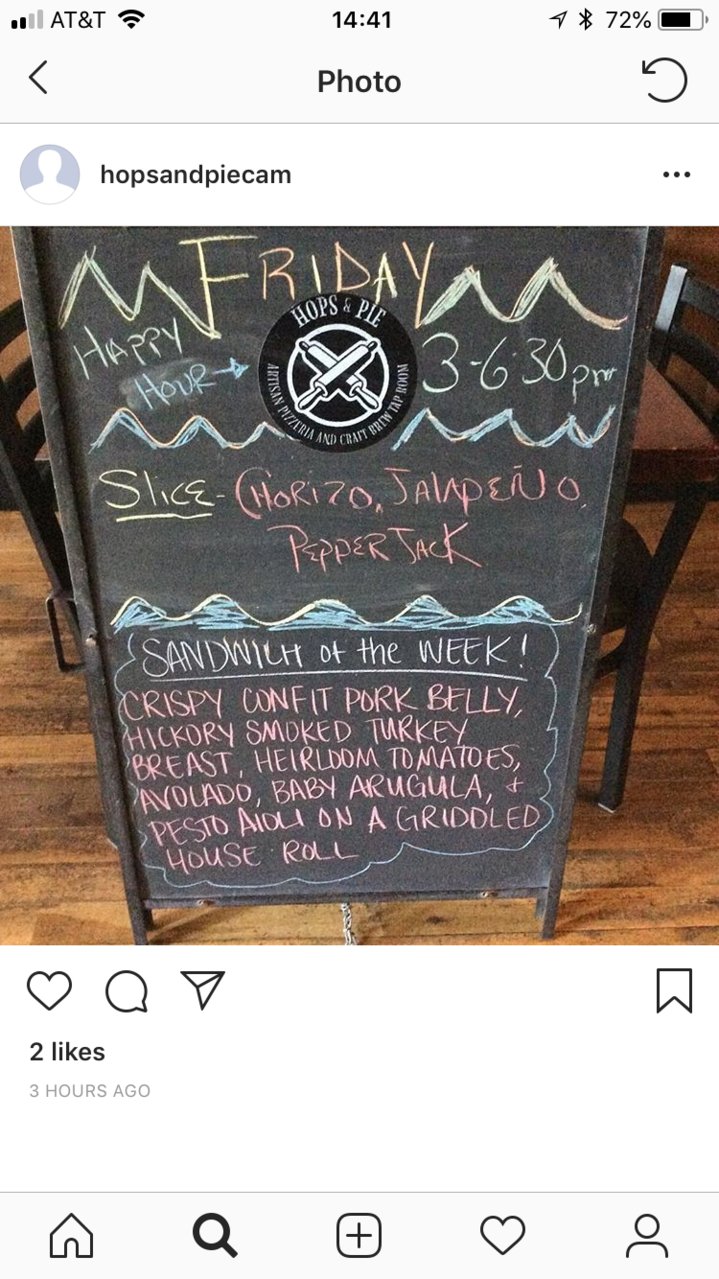 AT&T 14:41 72%
Photo
hopsandpiecam
FRIDAY
HOPS & PIE
ARTISAN PIZZERIA AND CRAFT BREW TAP ROOM
HAPPY
HOUR → 3-6:30 pm
SLICE - CHORIZO, JALAPEÑO,
PEPPER JACK
SANDWICH of the WEEK!
CRISPY CONFIT PORK BELLY,
HICKORY SMOKED TURKEY
BREAST, HEIRLOOM TOMATOES,
AVOCADO, BABY ARUGULA, +
PESTO AIOLI ON A GRIDDLED
HOUSE ROLL
2 likes
3 HOURS AGO